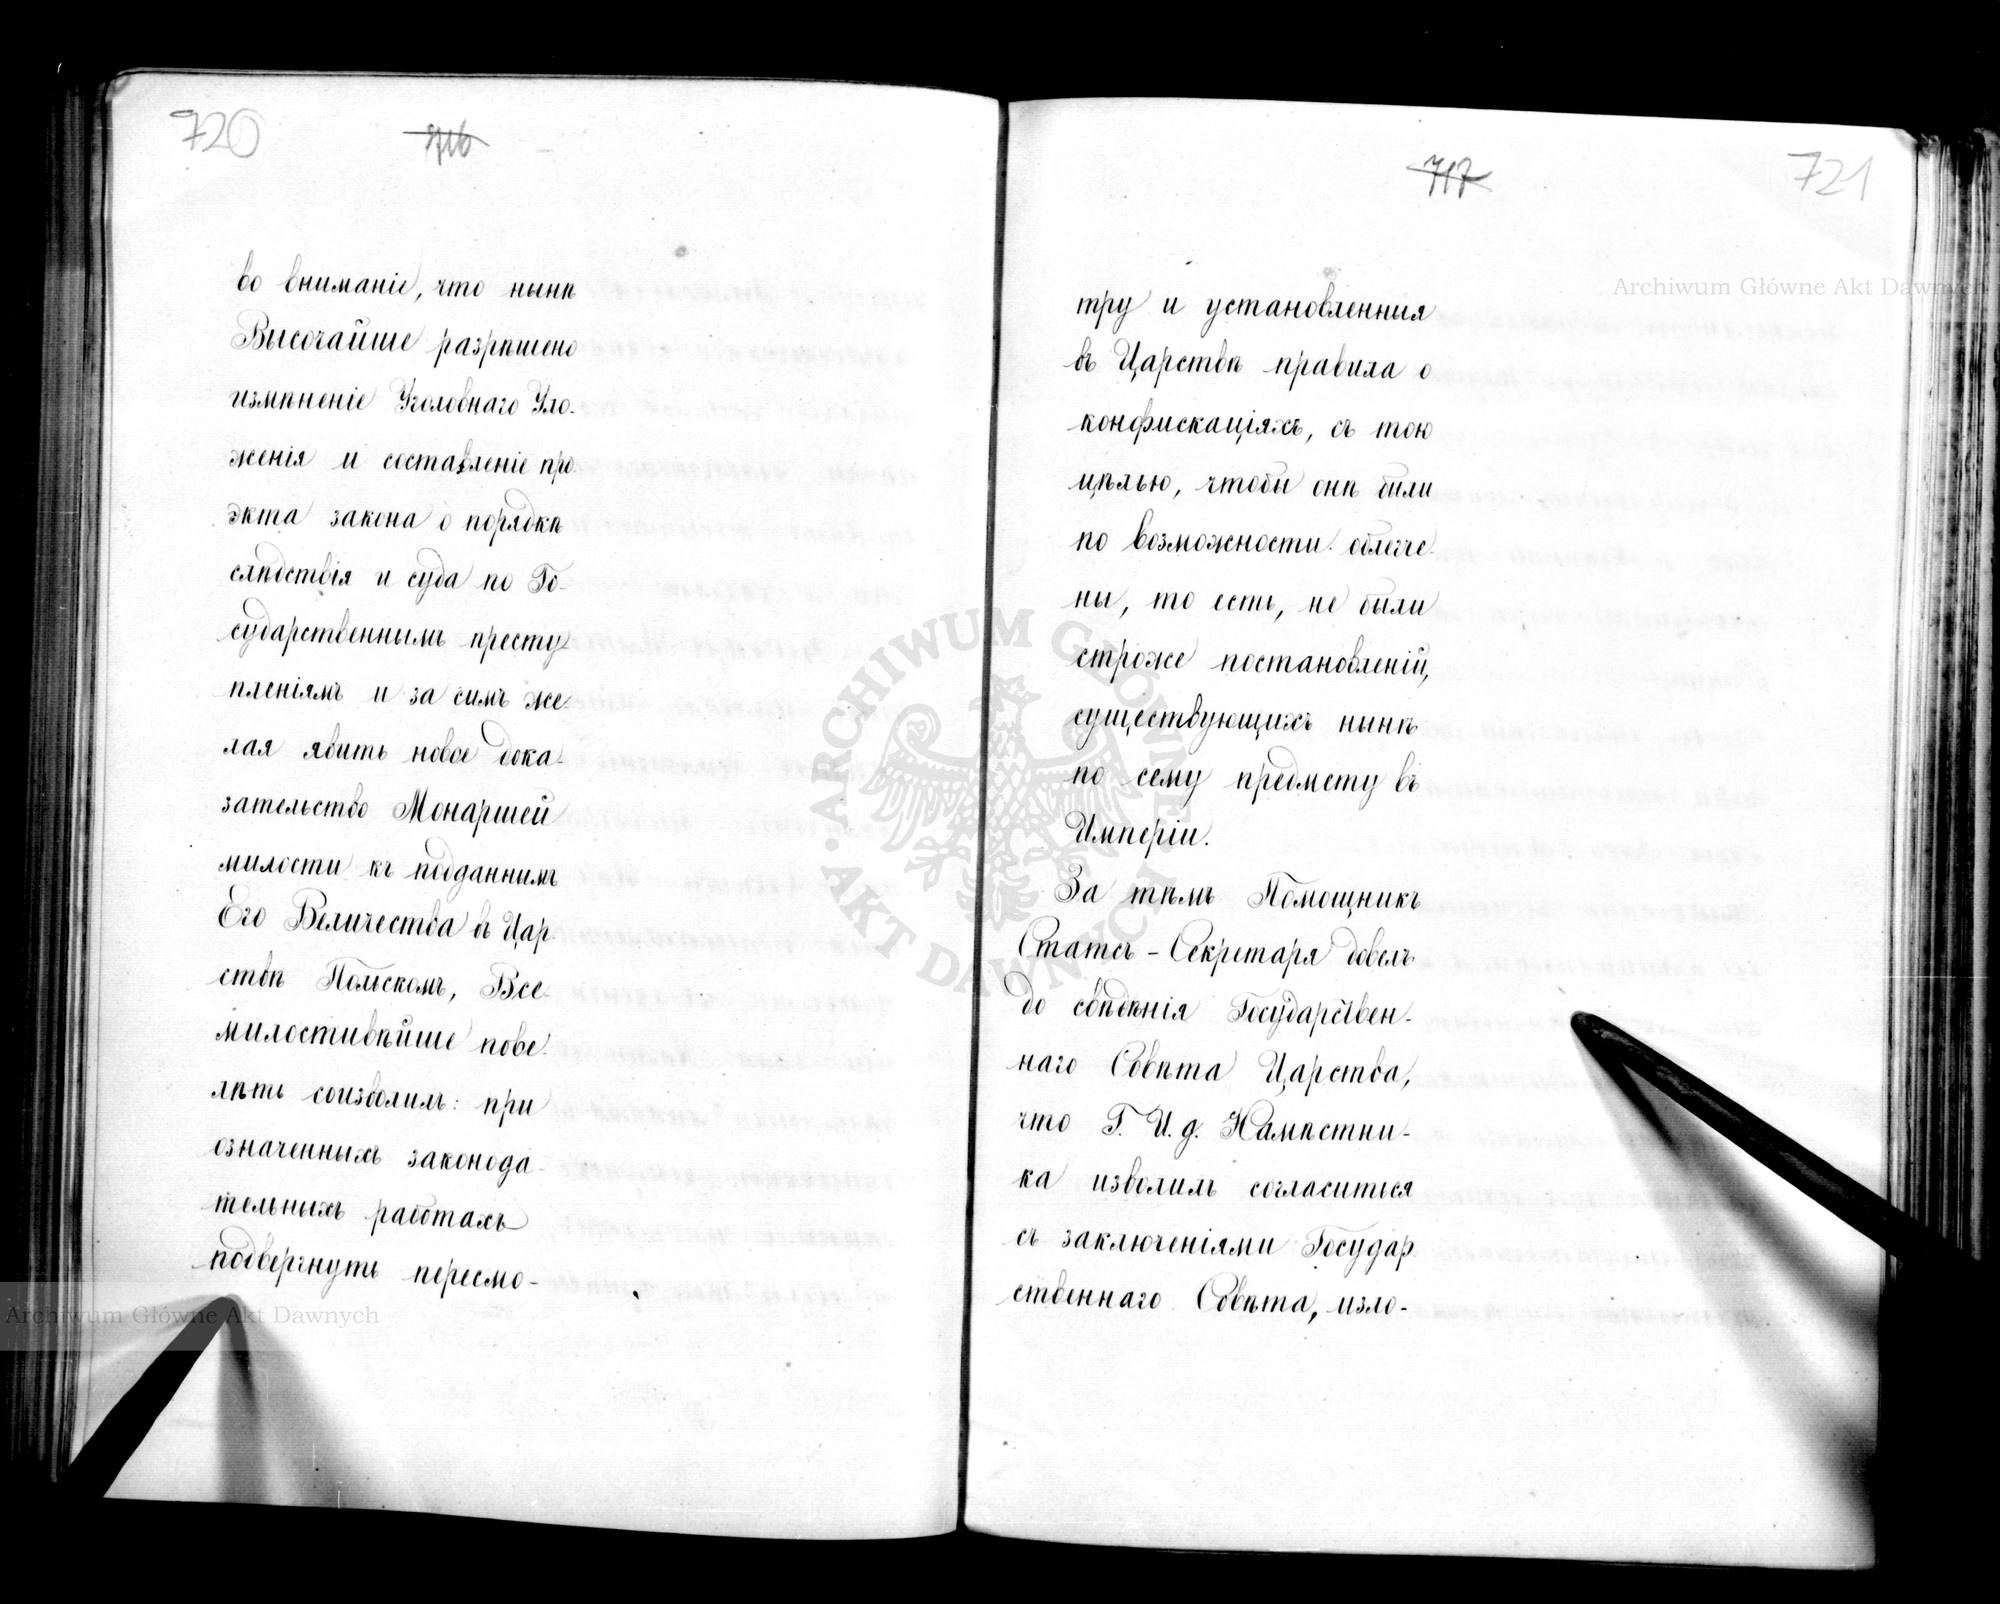 720
716
во вниманіе, что нынѣ
Высочайше разрѣшено
измѣненіе Уголовнаго Уло-
женія и составленіе про-
экта закона о порядкѣ
слѣдствія и суда по Го-
сударственнымъ престу-
пленіямъ и за симъ же-
лая явить новое дока-
зательство Монаршей
милости къ подданнымъ
Его Величества въ Цар-
ствѣ Польскомъ, Все-
милостивѣйше пове-
лѣть соизволилъ: при
означенныхъ законода-
тельныхъ работахъ
подвергнуть пересмо-
717
721
тру и установленныя
въ Царствѣ правила о
конфискаціяхъ, съ тою
цѣлью, чтобы онѣ были
по возможности облегче-
ны, то есть, не были
строже постановленій,
существующихъ нынѣ
по сему предмету въ
Имперіи.
За тѣмъ Помощникъ
Статсъ-Секретаря довелъ
до свѣдѣнія Государствен-
наго Совѣта Царства,
что Г. И. д. Намѣстни-
ка изволилъ согласиться
съ заключеніями Государ
ственнаго Совѣта, изло-
Archiwum Główne Akt Dawnych
Archiwum Główne Akt Dawnych
ARCHIWUM GŁÓWNE AKT DAWNYCH